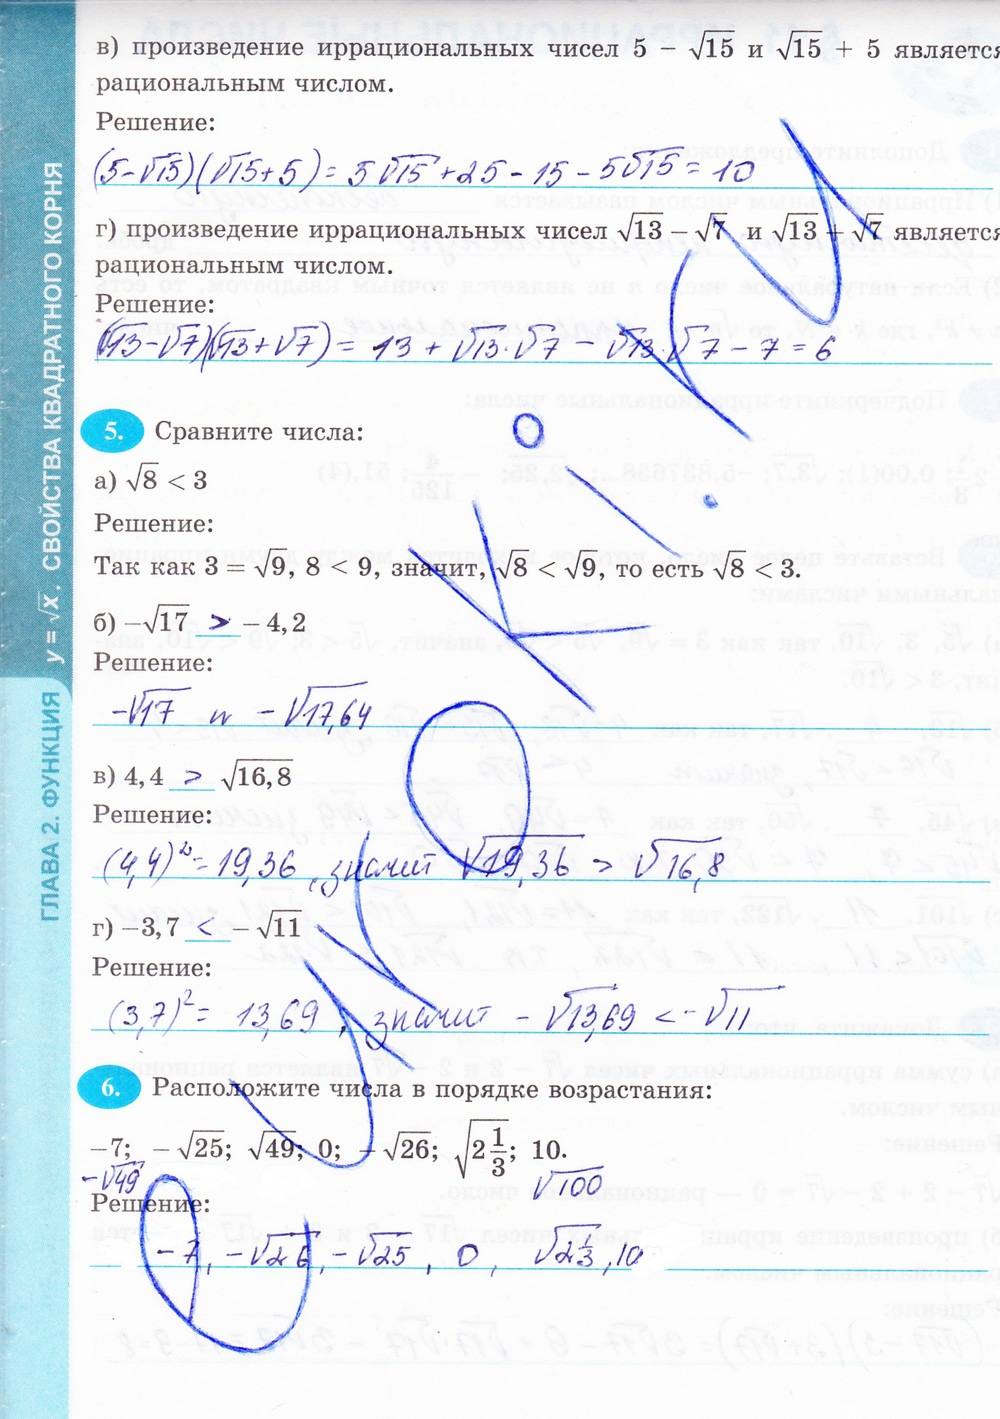 в) произведение иррациональных чисел 5 − √15 и √15 + 5 является
рациональным числом.
Решение:
(5-√15)(√15+5) = 5√15 +25 - 15 - 5√15 = 10
г) произведение иррациональных чисел √13 − √7 и √13 + √7 является
рациональным числом.
Решение:
(√13-√7)(√13+√7) = 13 + √13·√7 - √13·√7 - 7 = 6
5. Сравните числа:
а) √8 < 3
Решение:
Так как 3 = √9, 8 < 9, значит, √8 < √9, то есть √8 < 3.
б) −√17 > −4,2
Решение:
-√17 и -√17,64
в) 4,4 > √16,8
Решение:
(4,4)² = 19,36, значит √19,36 > √16,8
г) −3,7 < −√11
Решение:
(3,7)² = 13,69, значит -√13,69 < -√11
6. Расположите числа в порядке возрастания:
−7; −√25; √49; 0; −√26; √2 1/3; 10.
-√49 √100
Решение:
-7, -√26, -√25, 0, √2 1/3, 10
ГЛАВА 2. ФУНКЦИЯ y = √x. СВОЙСТВА КВАДРАТНОГО КОРНЯ